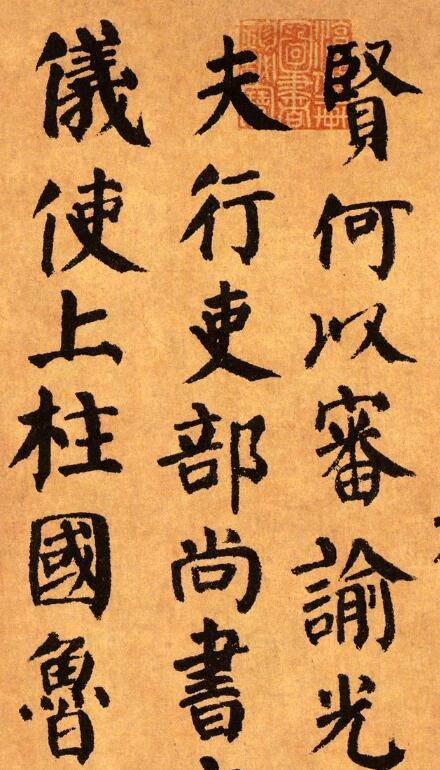 賢何以審諭光
夫行吏部尚書
儀使上柱國魯